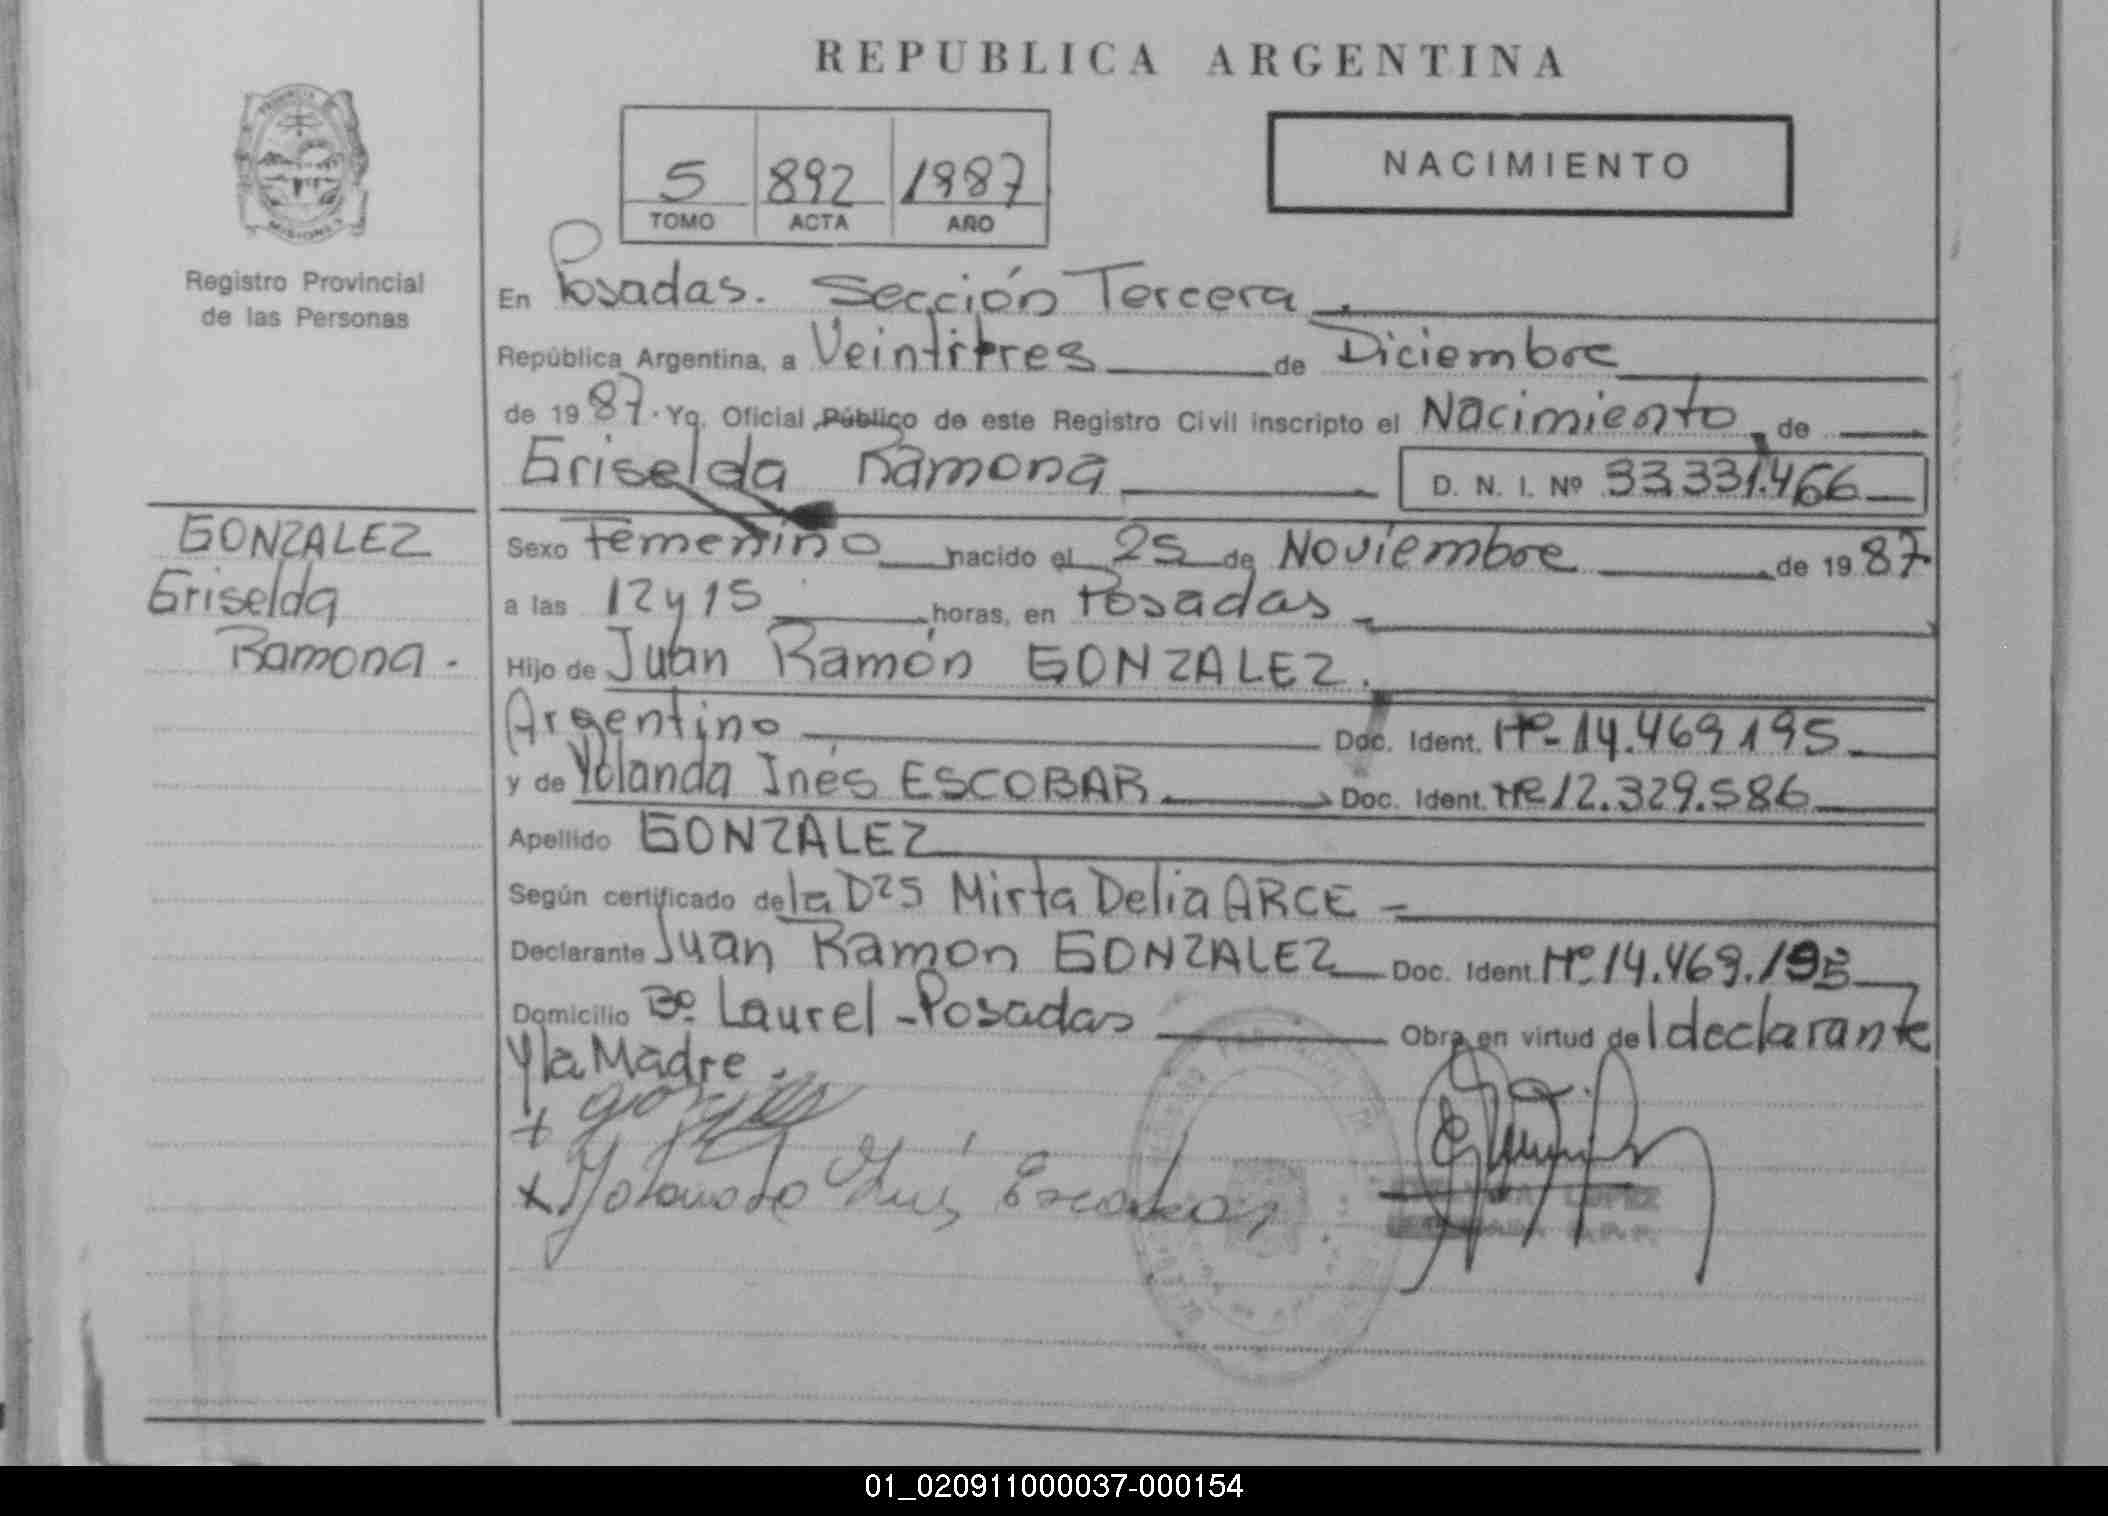 REPUBLICA ARGENTINA
NACIMIENTO
5 892 1987
TOMO ACTA AÑO
MISIONES
Registro Provincial
de las Personas
En Posadas. Sección Tercera
República Argentina, a Veintitres de Diciembre
de 1987. Yo, Oficial Público de este Registro Civil inscripto el Nacimiento de
Griselda Ramona D. N. I. Nº 33.331.466
GONZALEZ
Griselda
Ramona.
Sexo Femenino nacido el 25 de Noviembre de 1987
a las 12 y 15 horas, en Posadas
Hijo de Juan Ramón GONZALEZ.
Argentino Doc. Ident. Nº 14.469.195
y de Yolanda Inés ESCOBAR Doc. Ident. Nº 12.329.586
Apellido GONZALEZ
Según certificado de la Mirta Delia ARCE
Declarante Juan Ramon GONZALEZ Doc. Ident. Nº 14.469.195
Domicilio Bº Laurel - Posadas Obra en virtud del declarante
y la Madre.
+
x Yolanda Inés Escobar
LOPEZ
01_020911000037-000154